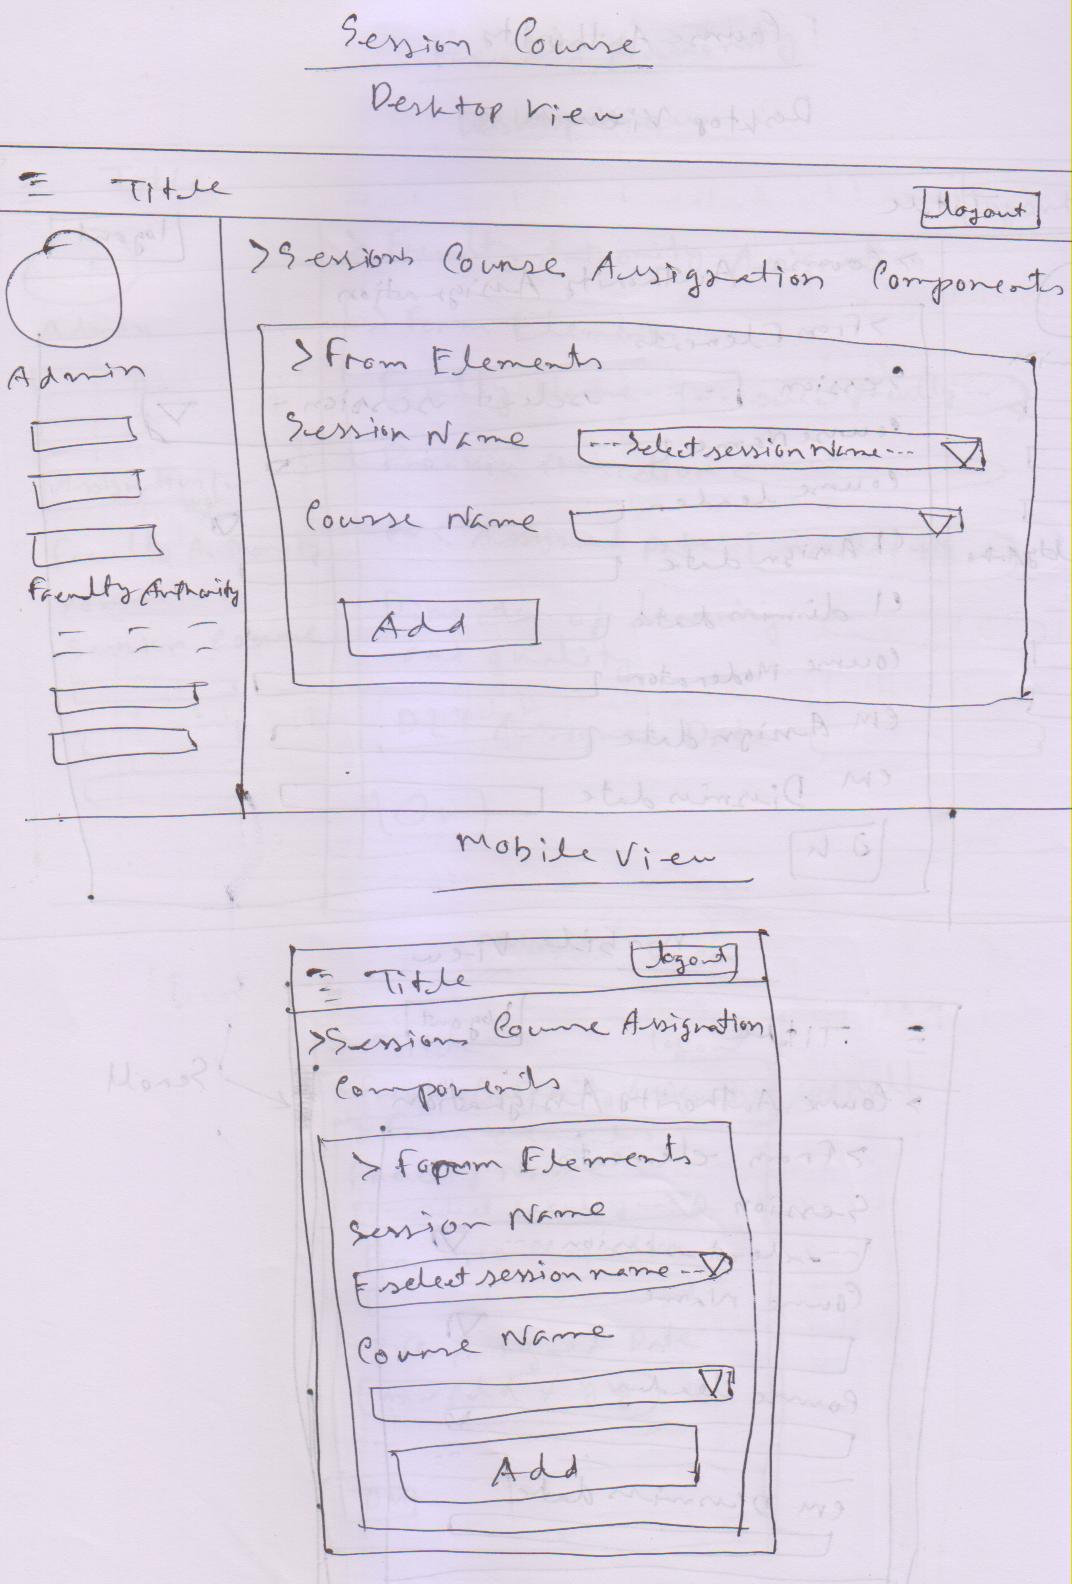 Session Course
Desktop View
Title
logout
>Sessions Course Assignation Components
Admin
>From Elements
Session Name
---Select session Name---
Course Name
Add
Faculty Authority
Mobile View
Title
logout
>Sessions Course Assignation
Components
> Form Elements
Session Name
select session name --
Course Name
Add